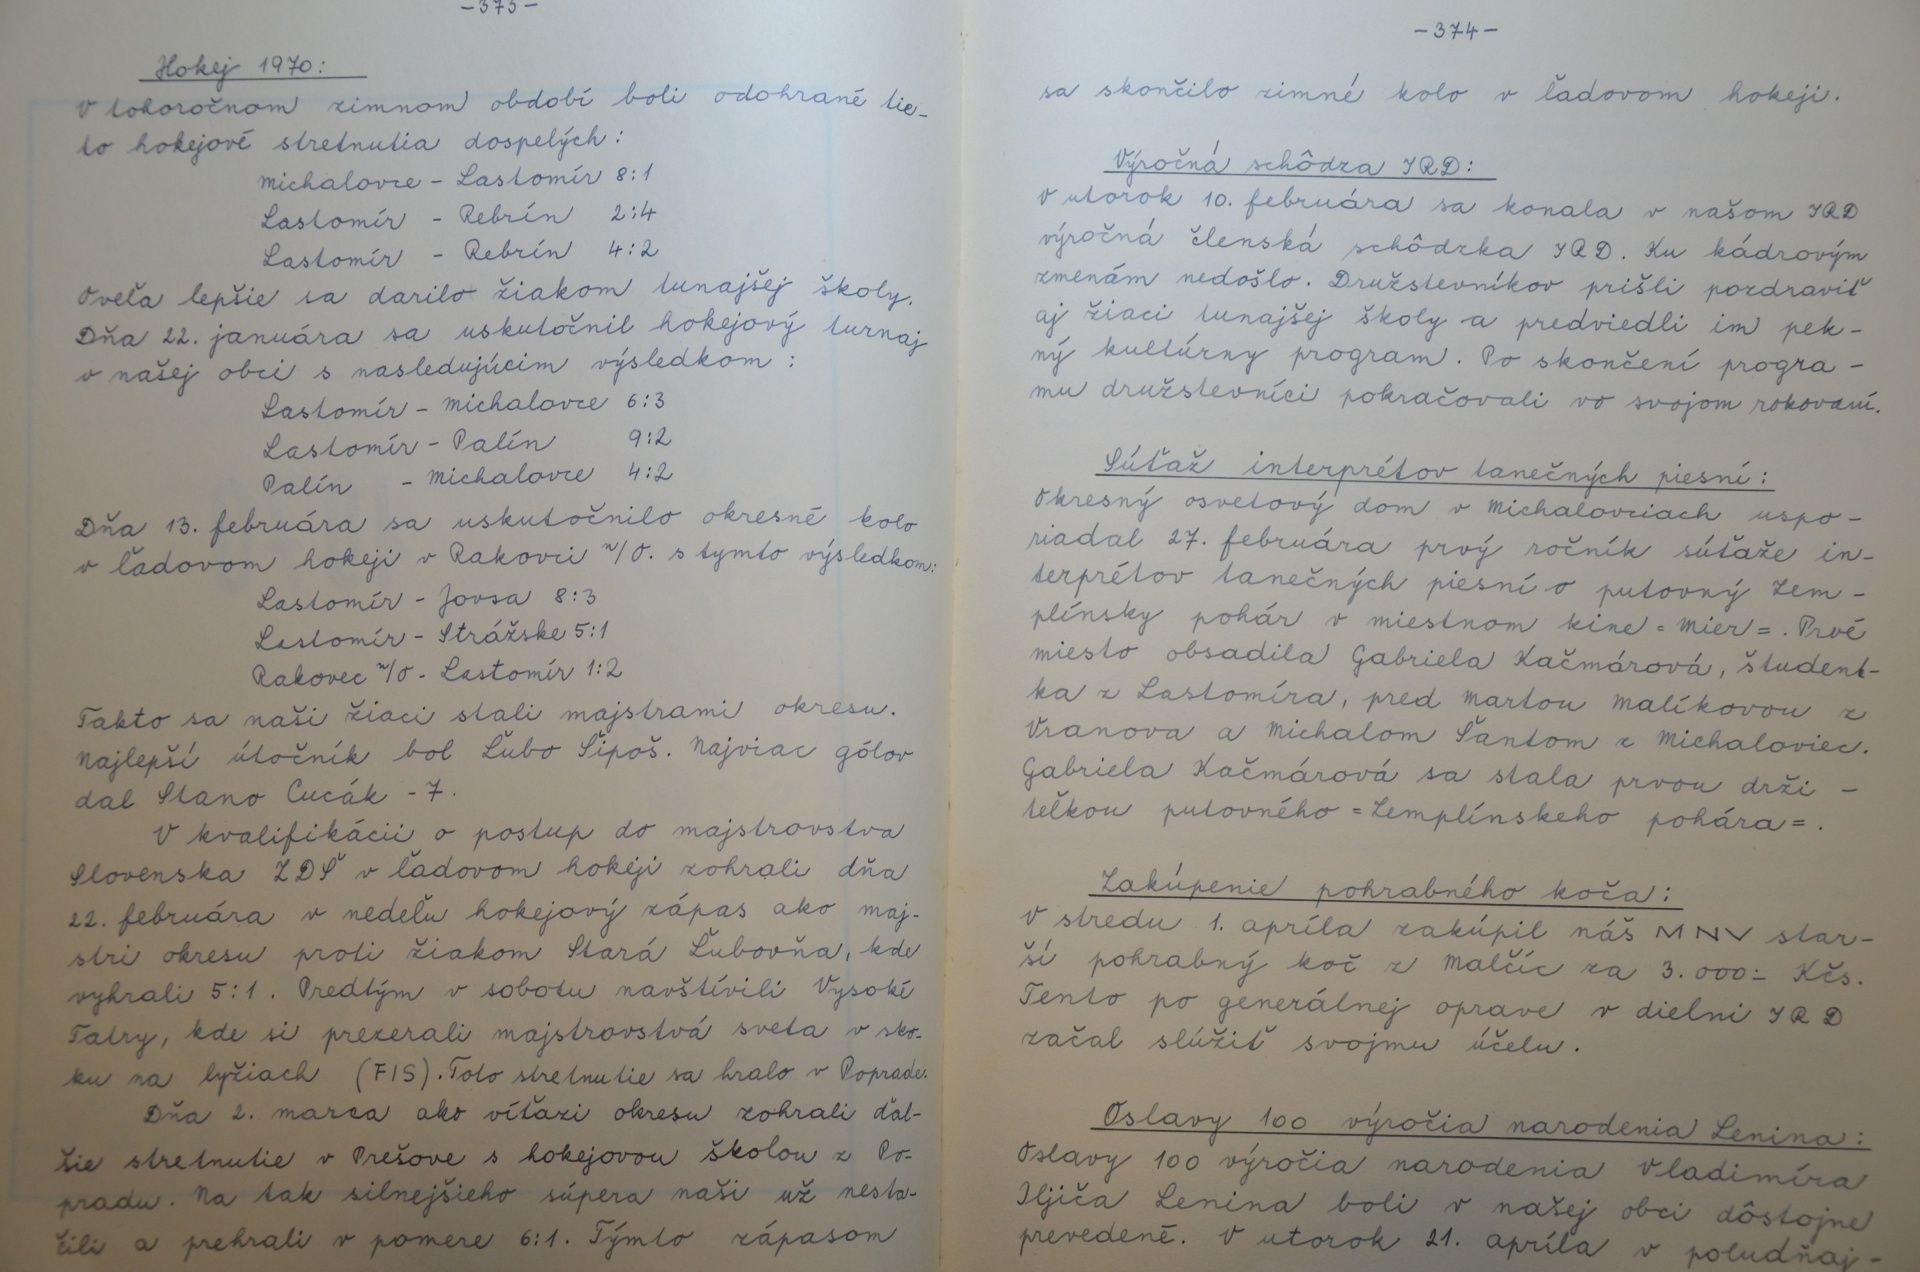 -373-
Hokej 1970:
V tohoročnom zimnom období boli odohrané tie-
to hokejové stretnutia dospelých:
Michalovce - Lastomír 8:1
Lastomír - Rebrín 2:4
Lastomír - Rebrín 4:2
Oveľa lepšie sa darilo žiakom tunajšej školy.
Dňa 22. januára sa uskutočnil hokejový turnaj
v našej obci s nasledujúcim výsledkom:
Lastomír - Michalovce 6:3
Lastomír - Palín 9:2
Palín - Michalovce 4:2
Dňa 13. februára sa uskutočnilo okresné kolo
v ľadovom hokeji v Rakovci n/O. s tymto výsledkom:
Lastomír - Jovsa 8:3
Lastomír - Strážske 5:1
Rakovec n/O - Lastomír 1:2
Takto sa naši žiaci stali majstrami okresu.
Najlepší útočník bol Ľubo Šipoš. Najviac gólov
dal Stano Cucák - 7.
V kvalifikácii o postup do majstrovstva
Slovenska ZDŠ v ľadovom hokeji zohrali dňa
22. februára v nedeľu hokejový zápas ako maj-
stri okresu proti žiakom Stará Ľubovňa, kde
vyhrali 5:1. Predtým v sobotu navštívili Vysoké
Tatry, kde si prezerali majstrovstvá sveta v sko-
ku na lyžiach (FIS). Toto stretnutie sa hralo v Poprade.
Dňa 2. marca ako víťazi okresu zohrali ďal-
šie stretnutie v Prešove s hokejovou školou z Po-
pradu. Na tak silnejšieho súpera naši už nesta-
čili a prehrali v pomere 6:1. Týmto zápasom
-374-
sa skončilo zimné kolo v ľadovom hokeji.
Výročná schôdza JRD:
V utorok 10. februára sa konala v našom JRD
výročná členská schôdzka JRD. Ku kádrovým
zmenám nedošlo. Družstevníkov prišli pozdraviť
aj žiaci tunajšej školy a predviedli im pek-
ný kultúrny program. Po skončení progra-
mu družstevníci pokračovali vo svojom rokovaní.
Súťaž interprétov tanečných piesní:
Okresný osvetový dom v Michalovciach uspo-
riadal 27. februára prvý ročník súťaže in-
terprétov tanečných piesní o putovný Zem-
plínsky pohár v miestnom kine = Mier =. Prvé
miesto obsadila Gabriela Kačmárová, študent-
ka z Lastomíra, pred Martou Malíkovou z
Vranova a Michalom Šantom z Michaloviec.
Gabriela Kačmárová sa stala prvou drži-
teľkou putovného =Zemplínskeho pohára=.
Zakúpenie pohrabného koča:
V stredu 1. apríla zakúpil náš MNV star-
ší pohrabný koč z Malčíc za 3.000:- Kčs.
Tento po generálnej oprave v dielni JRD
začal slúžiť svojmu účelu.
Oslavy 100 výročia narodenia Lenina:
Oslavy 100 výročia narodenia Vladimíra
Iljiča Lenina boli v našej obci dôstojne
prevedené. V utorok 21. apríla v poludňaj-